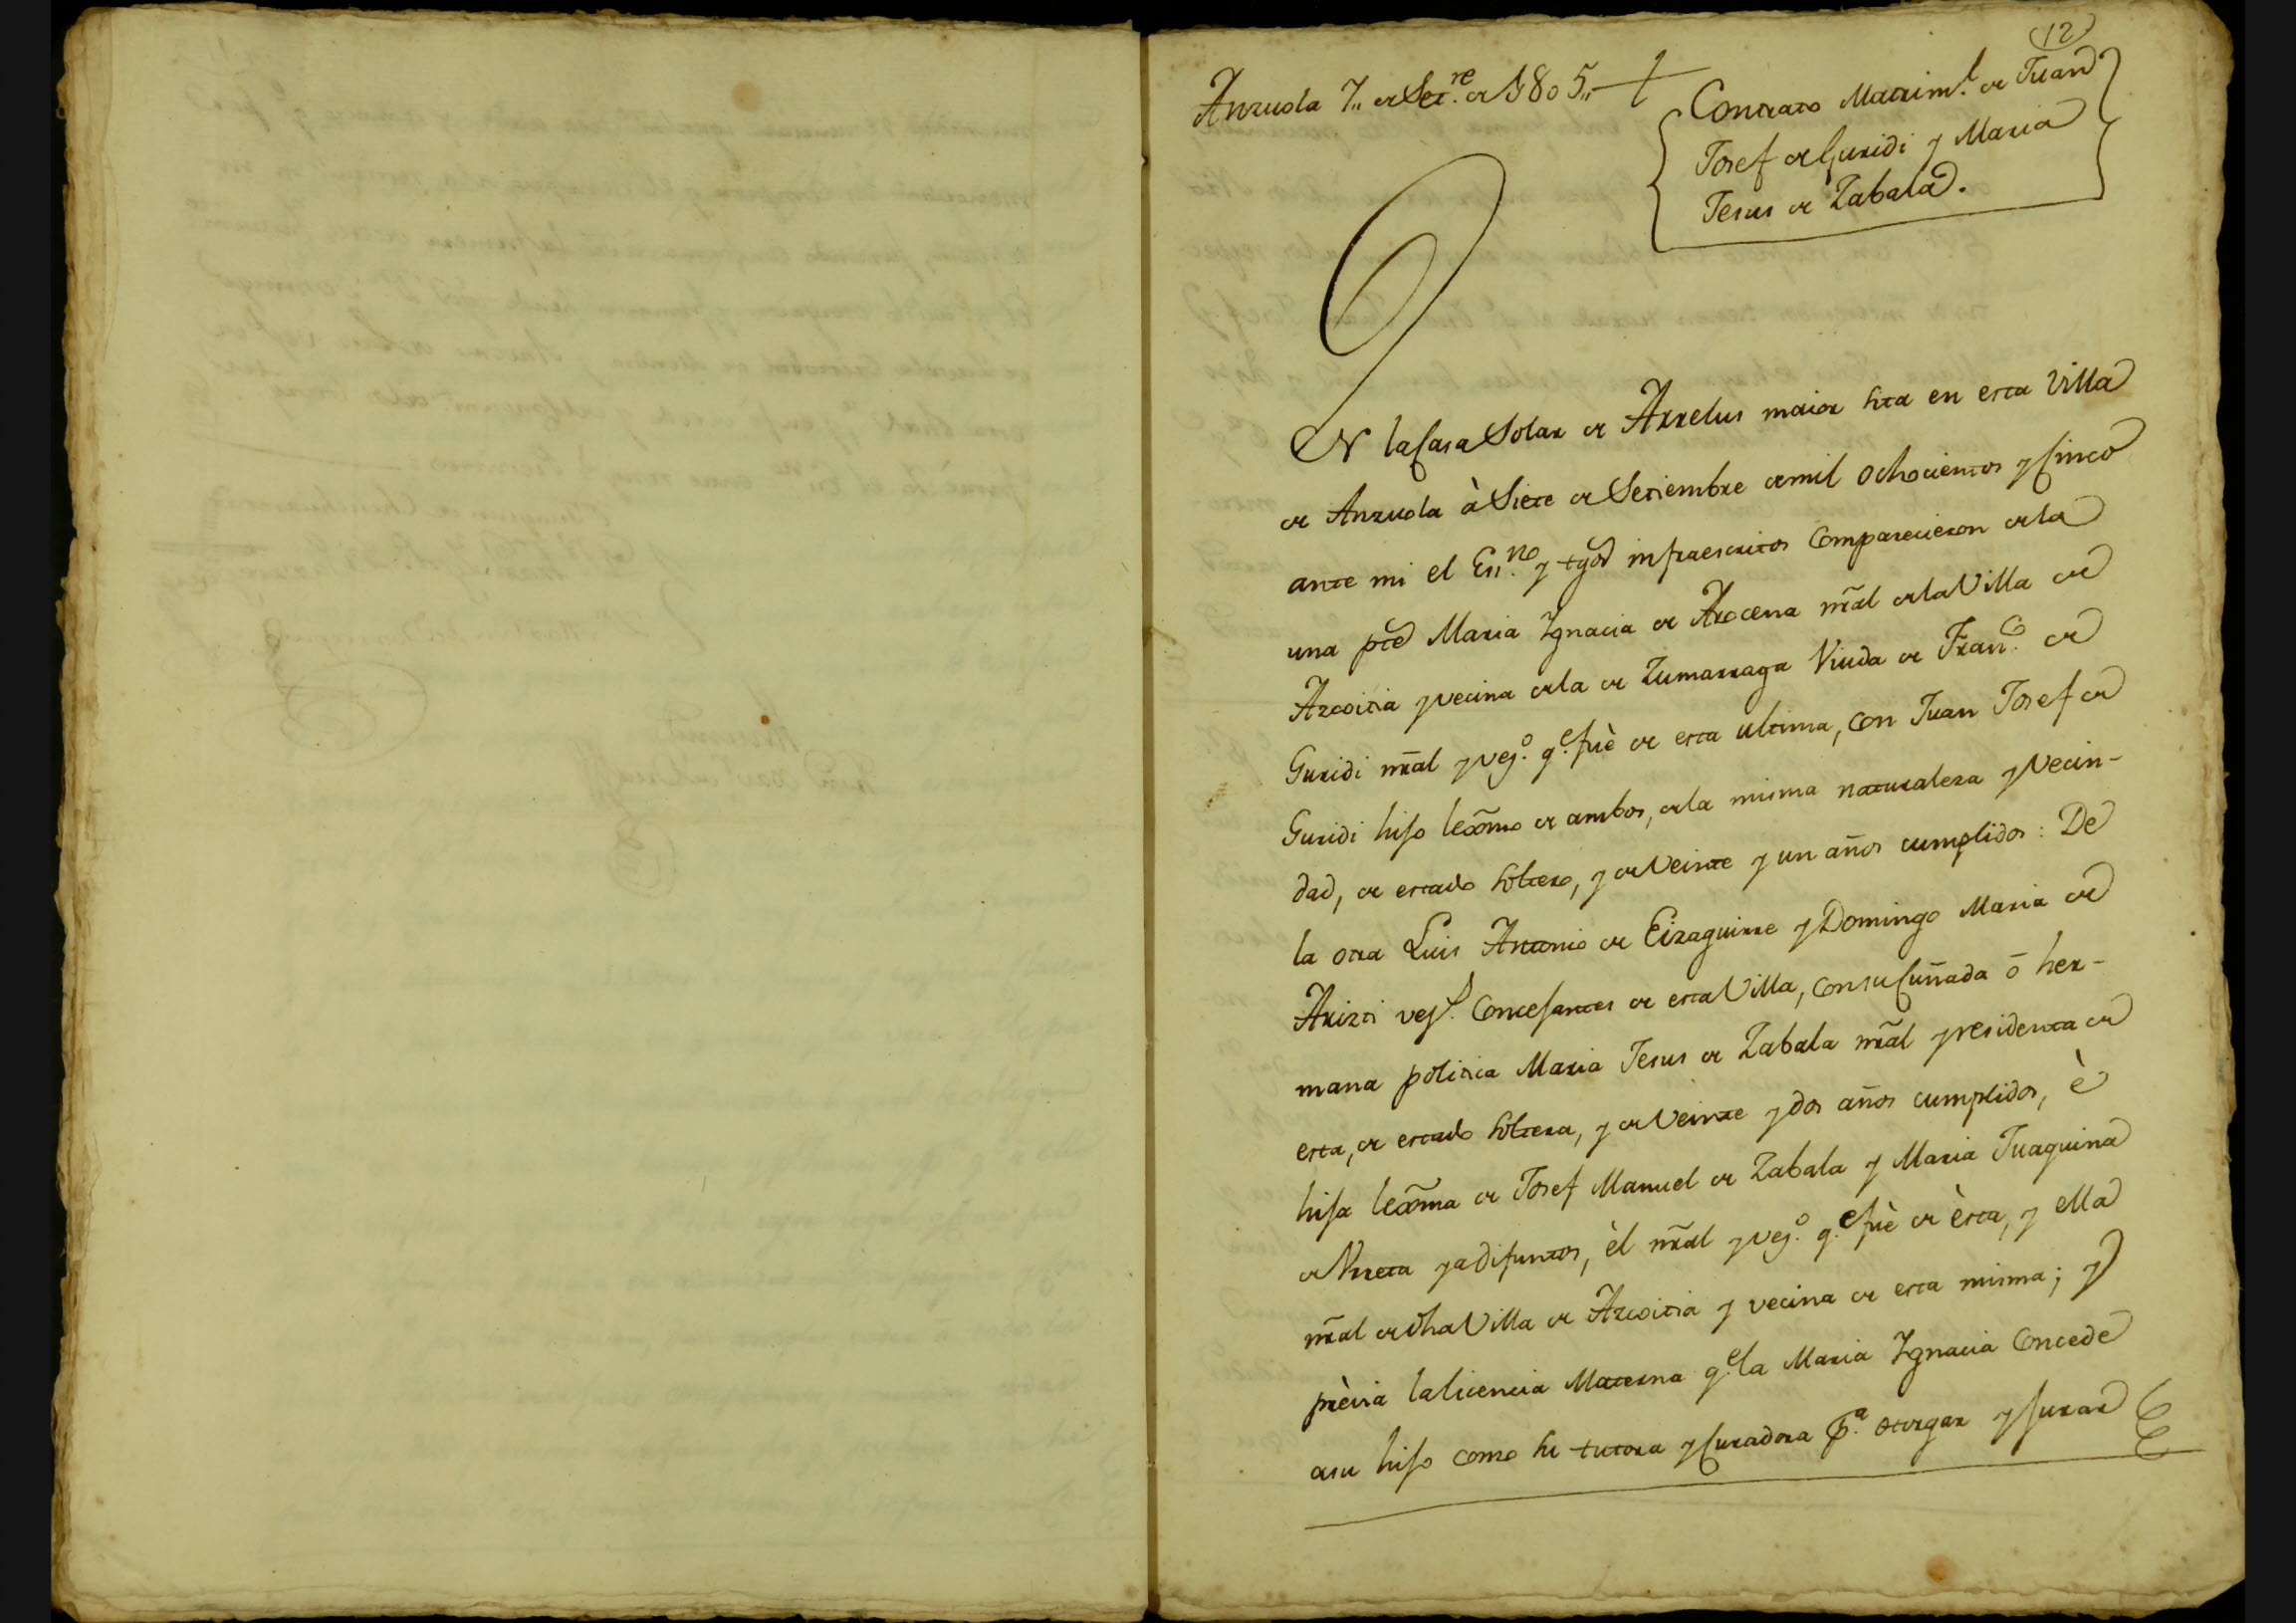 12
Anzuola 7,, de Set.re de 1805,,
Contrato Matrim.l de Juan
Josef de Guridi y Maria
Jesus de Zabala.
EN la Casa Solar de Arrelus maior sita en esta Villa
de Anzuola à Siete de Setiembre de mil ochocientos y Cinco
ante mi el Ess.no y tgos infraescritos Comparecieron de la
una pte Maria Ygnacia de Arocena nral de la Villa de
Azcoitia y vecina de la de Zumarraga Viuda de Fran.co de
Guridi nral y vez.o q.e fuè de esta ultima, con Juan Josef de
Guridi hijo lexmo de ambos, de la misma naturaleza y Vecin-
dad, de estado soltero, y de Veinte y un años cumplidos: De
la otra Luis Antonio de Eizaguirre y Domingo Maria de
Arizti vez.s Concejantes de esta Villa, con su Cuñada ō her-
mana politica Maria Jesus de Zabala nral y residenta de
esta, de estado soltera, y de Veinte y dos años cumplidos, è
hija lexma de Josef Manuel de Zabala y Maria Juaquina
de Urreta ya difuntos, èl nral y vez.o q.e fuè de èsta, y ella
nral de dha Villa de Azcoitia y vecina de esta misma; y
prèvia la licencia Materna q.e la Maria Ygnacia Concede
a su hijo como su tutora y Curadora p.a otorgar y jurar